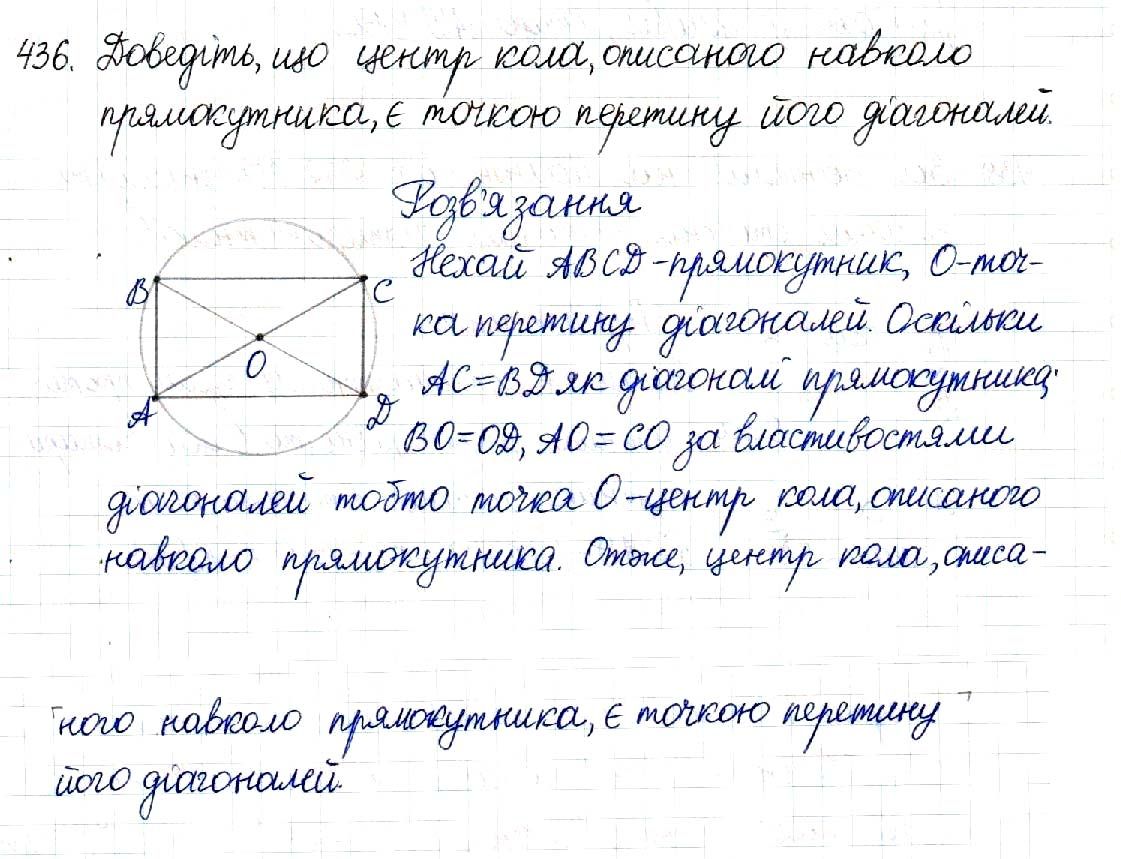 436. Доведіть, що центр кола, описаного навколо
прямокутника, є точкою перетину його діагоналей.
Розв'язання
Нехай ABCD - прямокутник, O - точ-
ка перетину діагоналей. Оскільки
AC = BD як діагоналі прямокутника;
BO = OD, AO = CO за властивостями
діагоналей тобто точка O - центр кола, описаного
навколо прямокутника. Отже, центр кола, описа-
ного навколо прямокутника, є точкою перетину
його діагоналей.
B
C
O
A
D